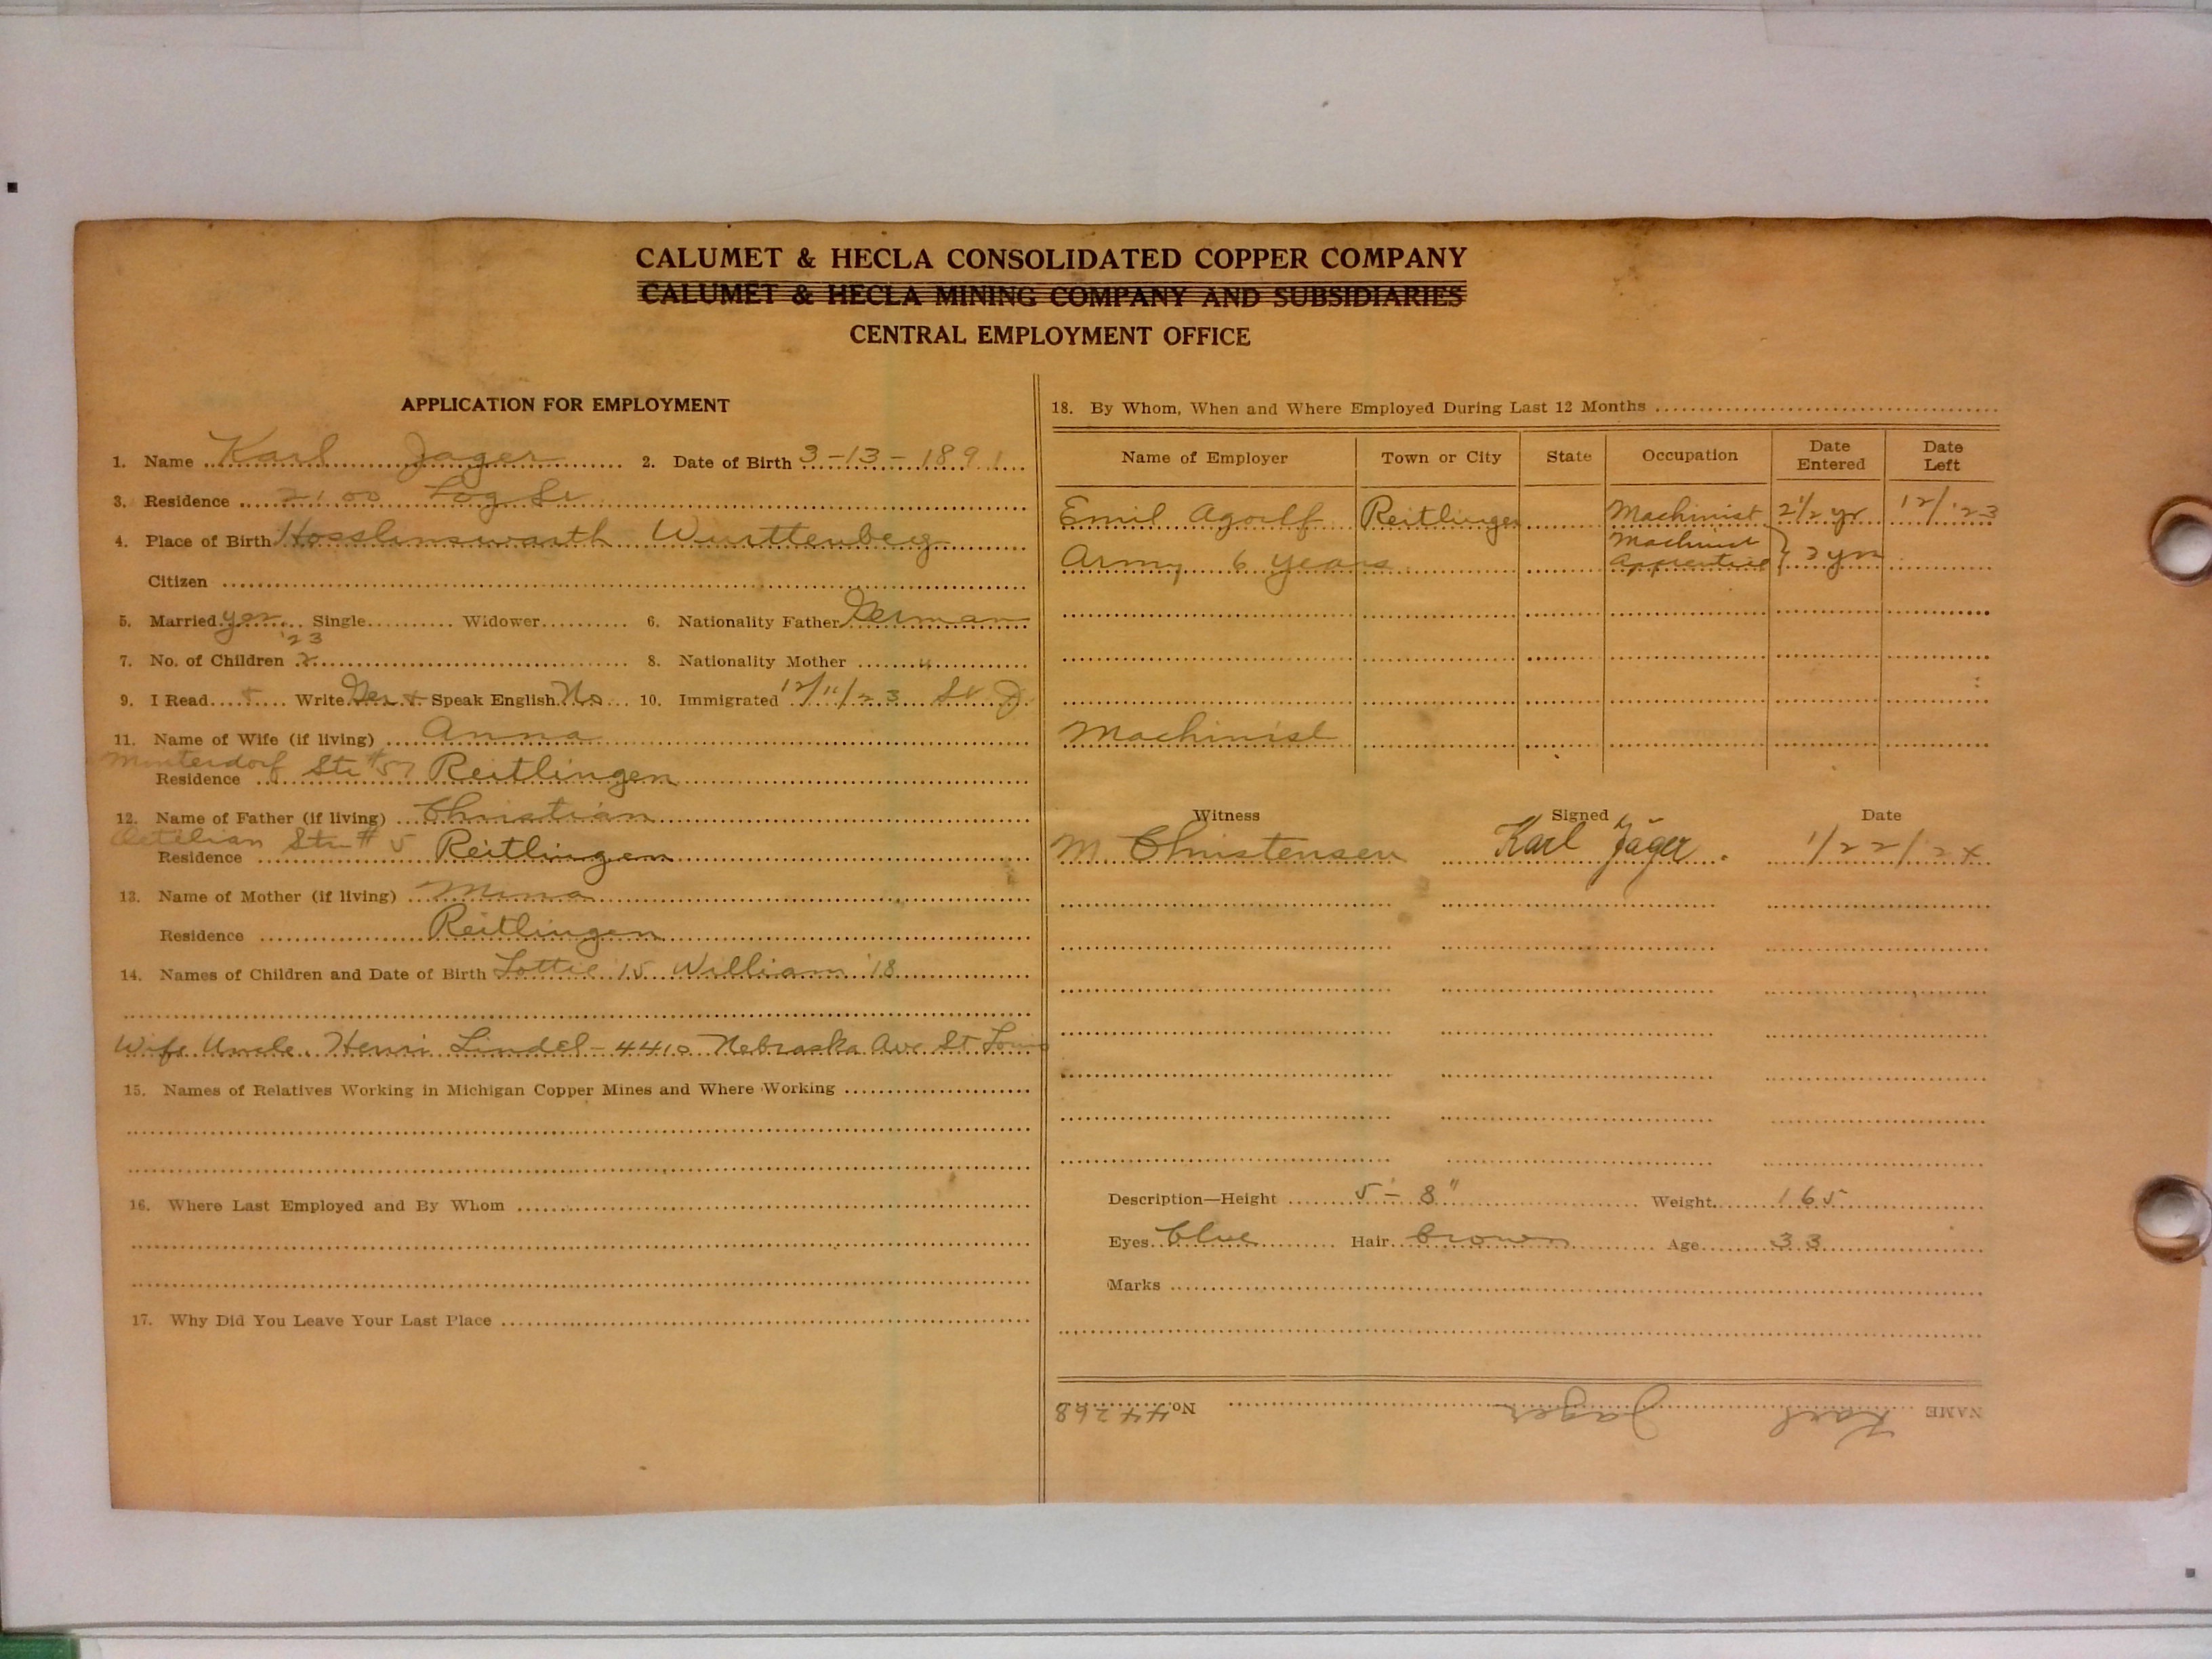 CALUMET & HECLA CONSOLIDATED COPPER COMPANY
CALUMET & HECLA MINING COMPANY AND SUBSIDIARIES
CENTRAL EMPLOYMENT OFFICE
APPLICATION FOR EMPLOYMENT
1. Name Karl Jager 2. Date of Birth 3-13-1891
3. Residence 2100 Log St
4. Place of Birth Hosslinswarth Wurttenberg
Citizen
5. Married yes Single Widower 6. Nationality Father German
'23
7. No. of Children 2 8. Nationality Mother "
9. I Read Write Ger + Speak English No 10. Immigrated 12/11/23
11. Name of Wife (if living) Anna
Residence Str #57 Reitlingen
12. Name of Father (if living) Christian
Residence Str # 5 Reitlingen
13. Name of Mother (if living) Mina
Residence Reitlingen
14. Names of Children and Date of Birth Lottie 15 William '18
Wife Uncle. Henri Lindel - 4410 Nebraska Ave St Louis
15. Names of Relatives Working in Michigan Copper Mines and Where Working
16. Where Last Employed and By Whom
17. Why Did You Leave Your Last Place
18. By Whom, When and Where Employed During Last 12 Months
Name of Employer Town or City State Occupation Date Entered Date Left
Emil Agolf Reitlingen Machinist 2 1/2 yr 12/'23
Army 6 years Machinist Apprentice } 3 yrs
Machinist
Witness Signed Date
M Christensen Karl Jäger. 1/22/24
Description—Height 5'-8" Weight 165
Eyes blue Hair brown Age 33
Marks
NAME Karl Jager No. 44268